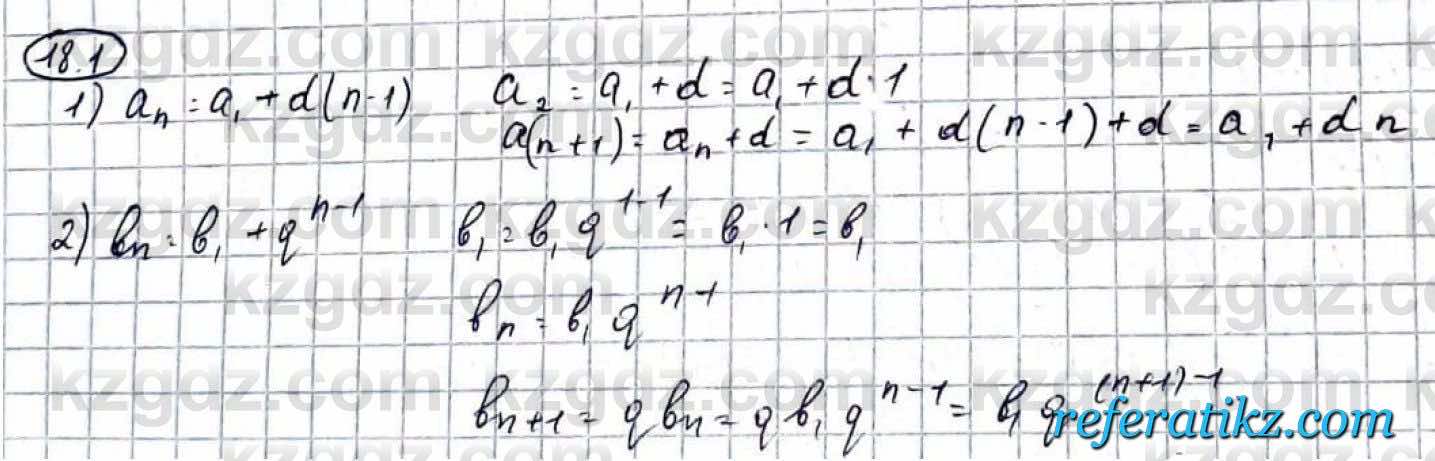 18.1
1) aₙ = a₁ + d(n-1)    a₂ = a₁ + d = a₁ + d·1
a(n+1) = aₙ + d = a₁ + d(n-1) + d = a₁ + d n
2) вₙ = в₁ + q^(n-1)    в₁ = в₁ q^(1-1) = в₁·1 = в₁
вₙ = в₁ q^(n-1)
вₙ₊₁ = q вₙ = q в₁ q^(n-1) = в₁ q^((n+1)-1)
kzgdz.com
referatikz.com